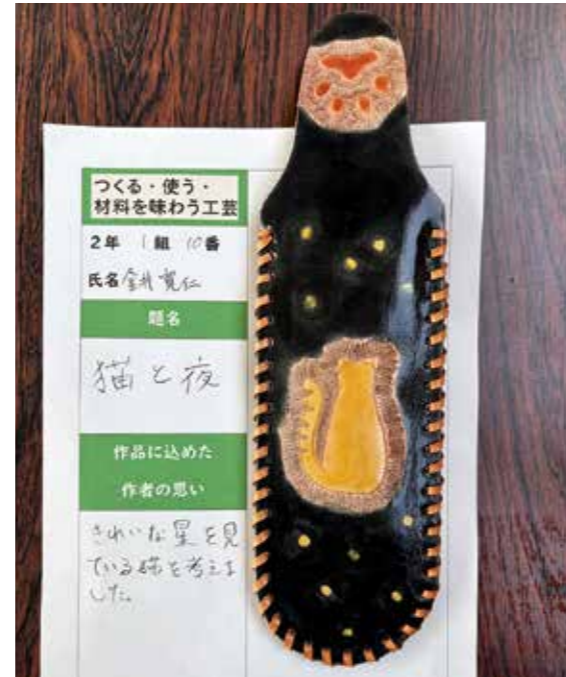 つくる・使う・
材料を味わう工芸
2年 1組 10番
氏名 金井寛仁
題名
猫と夜
作品に込めた
作者の思い
きれいな星を見
ている猫を考えま
した。